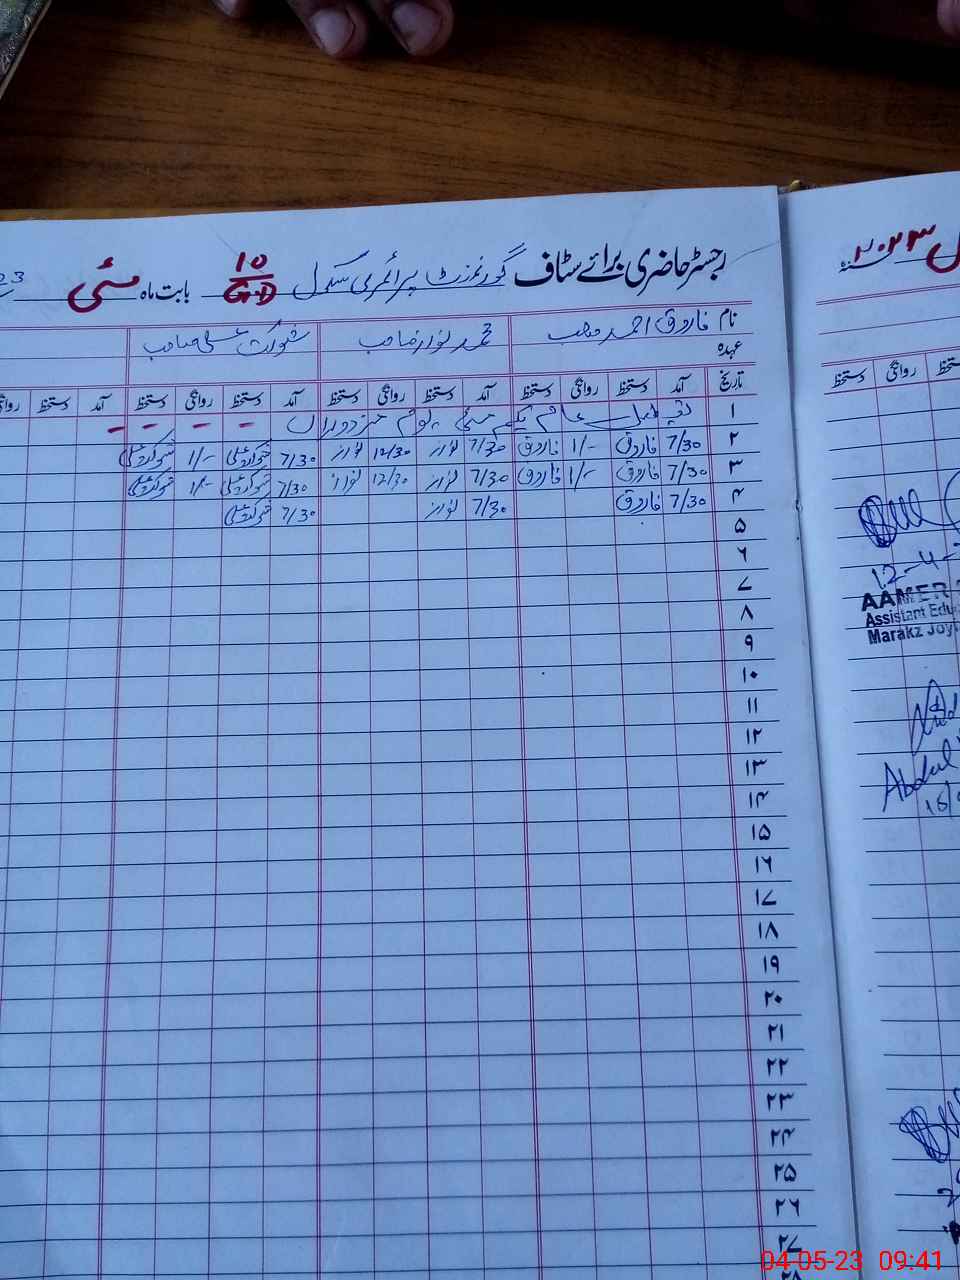 رجسٹر حاضری برائے سٹاف گورنمنٹ پرائمری سکول 15 G.D بابت ماہ مئی 23
نام فاروق احمد صاحب محمد نواز صاحب شوکت علی صاحب
عہدہ
تاریخ آمد دستخط روانگی دستخط آمد دستخط روانگی دستخط آمد دستخط روانگی دستخط آمد دستخط
۱ تعطیل عام یکم مئی یوم مزدوراں - - - -
۲ 7/30 فاروق 1/- فاروق 7/30 نواز 12/30 نواز 7/30 شوکت علی 1/- شوکت علی
۳ 7/30 فاروق 1/- فاروق 7/30 نواز 12/30 نواز 7/30 شوکت علی 1/- شوکت علی
۴ 7/30 فاروق 7/30 نواز 7/30 شوکت علی
۵
۶
۷
۸
۹
۱۰
۱۱
۱۲
۱۳
۱۴
۱۵
۱۶
۱۷
۱۸
۱۹
۲۰
۲۱
۲۲
۲۳
۲۴
۲۵
۲۶
۲۷
۲۸
۲۰۲۳
دستخط روانگی
12-4-
AAMER
Assistant Edu
Marakz Joy
Abdul
04-05-23 09:41